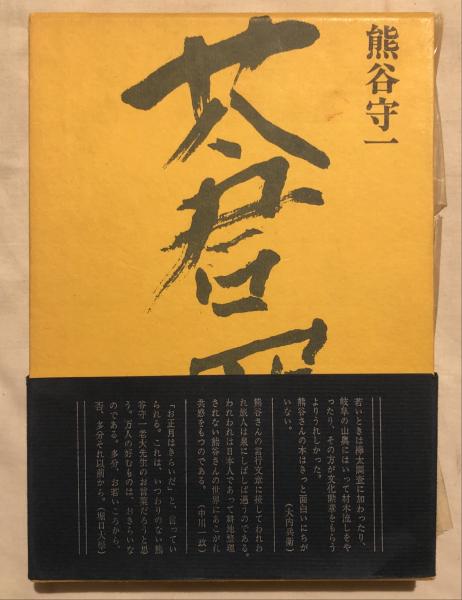 熊谷守一
蒼
若いときは樺太調査に加わったり、
岐阜の山奥にはいって材木流しをや
ったり、その方が文化勲章をもらう
よりうれしかった。
熊谷さんの本はきっと面白いにちが
いない。
（大内兵衛）
熊谷さんの言行文章に接してわれわ
れ旅人は泉にしばしば遇うのである。
われわれは日本人であって耕地整理
されない熊谷さんの世界にあこがれ
共感をもつのである。
（中川一政）
「お正月はきらいだ」と、言ってい
られる。これは、いつわりのない熊
谷守一老大先生のお言葉だろうと思
う。万人の好むものは、おきらいな
のである。多分、お若いころから、
否、多分それ以前から。（堀口大學）